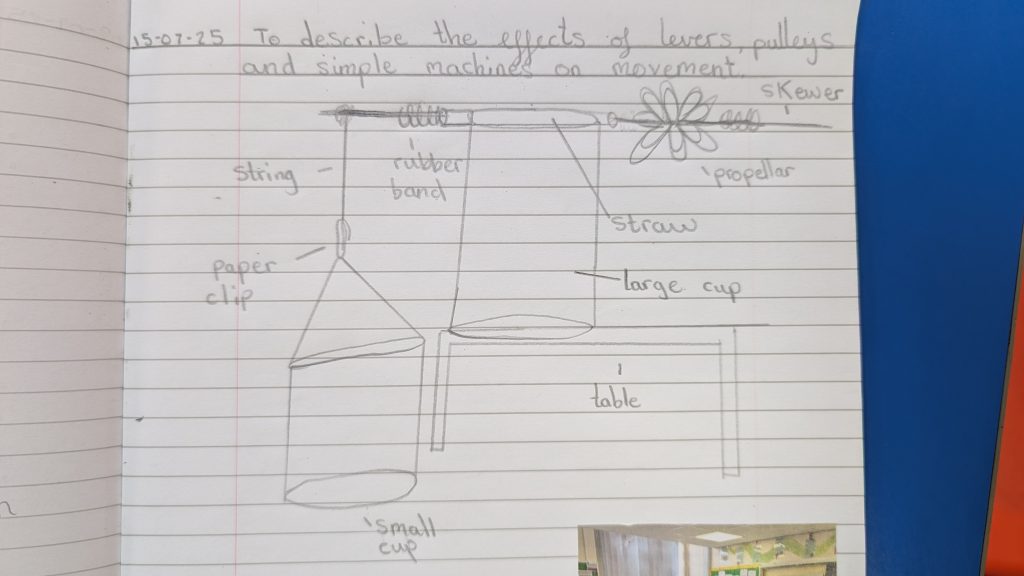 15-07-25 To describe the effects of levers, pulleys
and simple machines on movement.
skewer
string
rubber
band
propellar
straw
paper
clip
large cup
table
small
cup